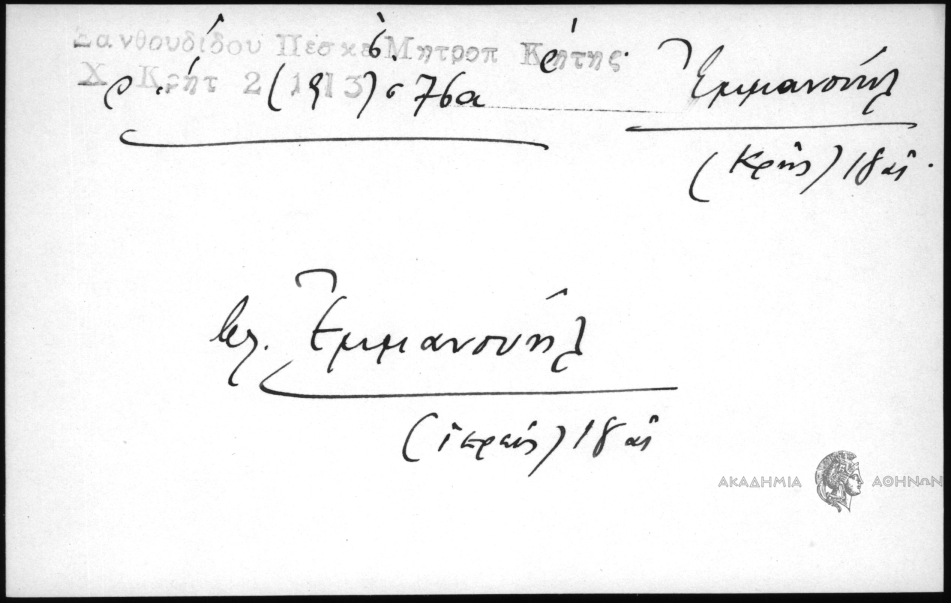 Ξανθουδίδου Πεσκε Μητροπ Κρήτης Ἐμμανουήλ
Χ. Κρήτ 2 1913 σ 76α
18 αἰ.
βλ. Ἐμμανουήλ
(ἱερεύς) 18 αἰ
ΑΚΑΔΗΜΙΑ ΑΘΗΝΩΝ